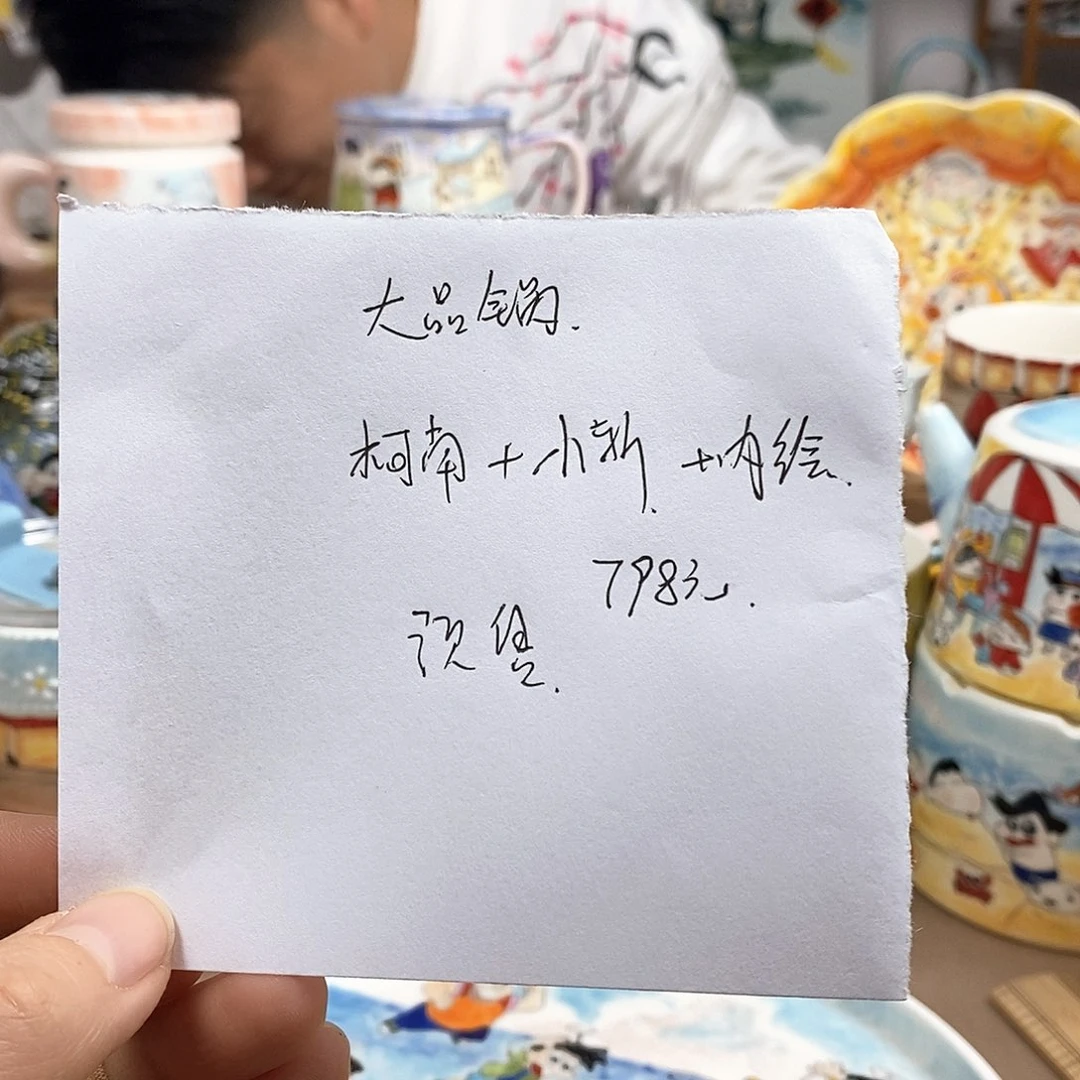 大品锅.
柯南+小新+内绘.
798元.
预售.